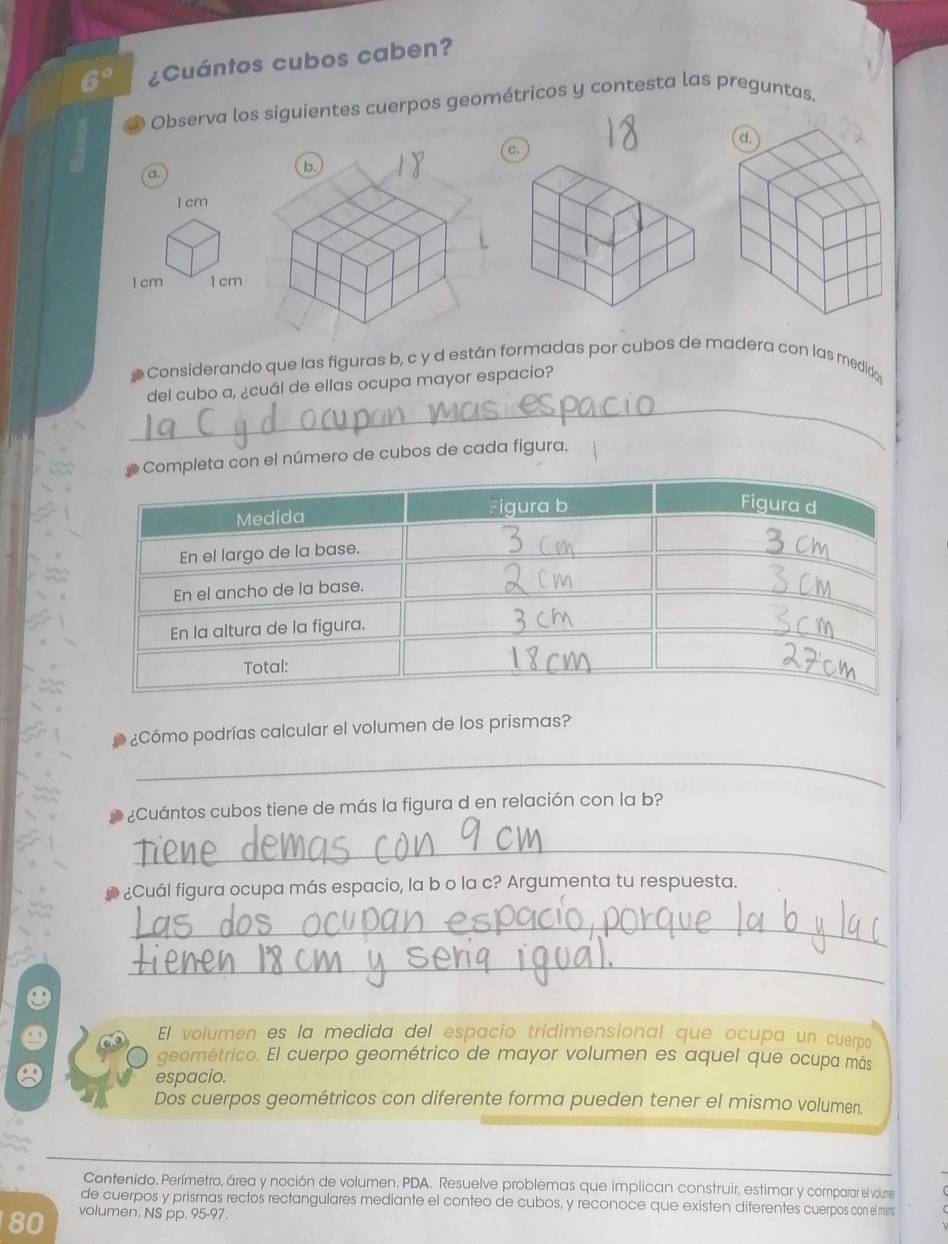 6° ¿Cuántos cubos caben?
Observa los siguientes cuerpos geométricos y contesta las preguntas.
a.
1 cm
1 cm 1 cm
b.
18
c.
18
d.
27
Considerando que las figuras b, c y d están formadas por cubos de madera con las medidas
del cubo a, ¿cuál de ellas ocupa mayor espacio?
la C y d ocupan mas espacio
Completa con el número de cubos de cada figura.
Medida Figura b Figura d
En el largo de la base. 3 cm 3 cm
En el ancho de la base. 2 cm 3 cm
En la altura de la figura. 3 cm 3 cm
Total: 18 cm 27 cm
¿Cómo podrías calcular el volumen de los prismas?
¿Cuántos cubos tiene de más la figura d en relación con la b?
Tiene demas con 9 cm
¿Cuál figura ocupa más espacio, la b o la c? Argumenta tu respuesta.
Las dos ocupan espacio, porque la b y la c
tienen 18 cm y seria igual.
El volumen es la medida del espacio tridimensional que ocupa un cuerpo
geométrico. El cuerpo geométrico de mayor volumen es aquel que ocupa más
espacio.
Dos cuerpos geométricos con diferente forma pueden tener el mismo volumen.
Contenido. Perímetro, área y noción de volumen. PDA. Resuelve problemas que implican construir, estimar y comparar el volumen
de cuerpos y prismas rectos rectangulares mediante el conteo de cubos, y reconoce que existen diferentes cuerpos con el mismo
volumen. NS pp. 95-97.
180